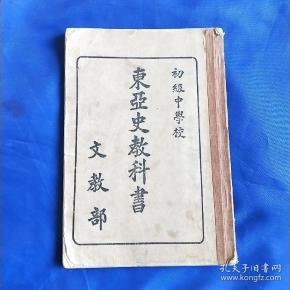 初級中學校
東亞史教科書
文教部
孔夫子旧书网